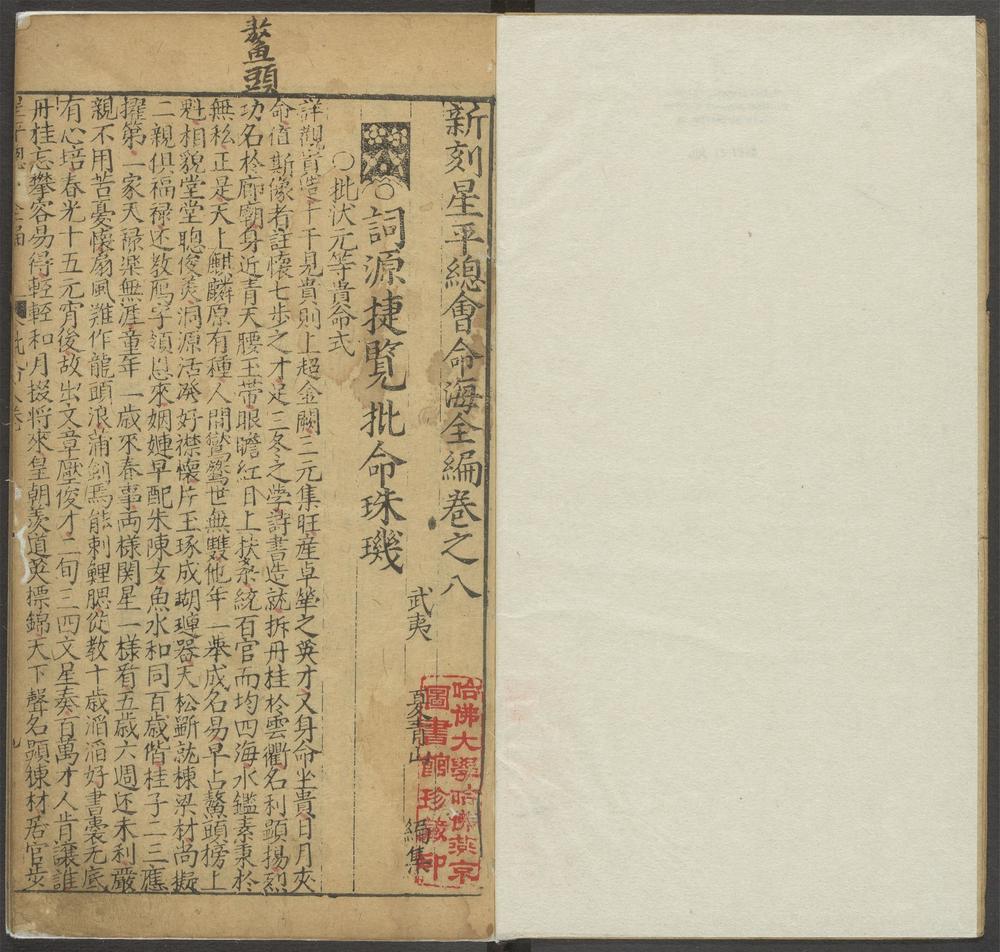 鰲頭
新刻星平總會命海全編卷之八
武夷 夏青山 編集
哈佛大學哈佛燕京
圖書館珍藏印
○詞源捷覽批命珠璣
○批伏元等貴命式
詳觀貴造干干見貴則上超金闕三元集旺産卓犖之英才又身命坐貴日月夾
命值斯像者註懷七步之才足三冬之学詩書造就拆丹桂於雲衢名利顕揚烈
功名於廊廟身近青天腰玉带眼瞻紅日上扶桑統百官而均四海水鑑素秉於
無私正是天上麒麟原有種人間鸑鷟世無雙他年一舉成名易早占鰲頭榜上
魁相貌堂堂聰俊美洞源活溌好襟懷片玉琢成瑚璉器天松斲就棟梁材尚擬
二親俱福禄还教鴈字領恩來姻婕早配朱陳女魚水和同百歳偕桂子二三應
擢第一家天禄楽無涯童年一歳來春事両様関星一様看五歳六週还未利嚴
親不用苦憂懷扇風難作龍頭浪蒲劍焉能刺鯉腮從教十歳滔滔好書囊无底
有心培春光十五元宵後故出文章壓俊才二旬三四文星奏百萬才人肯讓誰
丹桂忘攀容易得輕輕和月掇将來皇朝羡道英摽錦天下聲名顕練材居官步